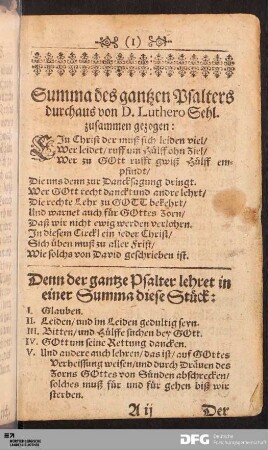 (1)
Summa des gantzen Psalters
durchaus von D. Luthero Sehl.
zusammen gezogen:
EIn Christ der muß sich leiden viel/
Wer leidet/ ruff um Hülff ohn Ziel/
Wer zu GOtt rufft gwiß Hülff em-
pfindt/
Die uns denn zur Dancksagung dringt.
Wer GOtt recht danckt und andre lehrt/
Die rechte Lehr zu GOTT bekehrt/
Und warnet auch für GOttes Zorn/
Daß wir nicht ewig werden verlohrn.
In diesem Circkl ein ieder Christ/
Sich üben muß zu aller Frist/
Wie solchs von David geschrieben ist.
Denn der gantze Psalter lehret in
einer Summa diese Stück:
I. Glauben.
II. Leiden/ und im Leiden gedultig seyn.
III. Bitten/ und Hülffe suchen bey GOtt.
IV. GOtt um seine Rettung dancken.
V. Und andere auch lehren/ das ist/ auf GOttes
Verheissung weisen/ und durch Dräuen des
Zorns GOttes von Sünden abschrecken/
solches muß für und für gehen biß wir
sterben.
A ij
Der
DFG
Deutsche
Forschungsgemeinschaft